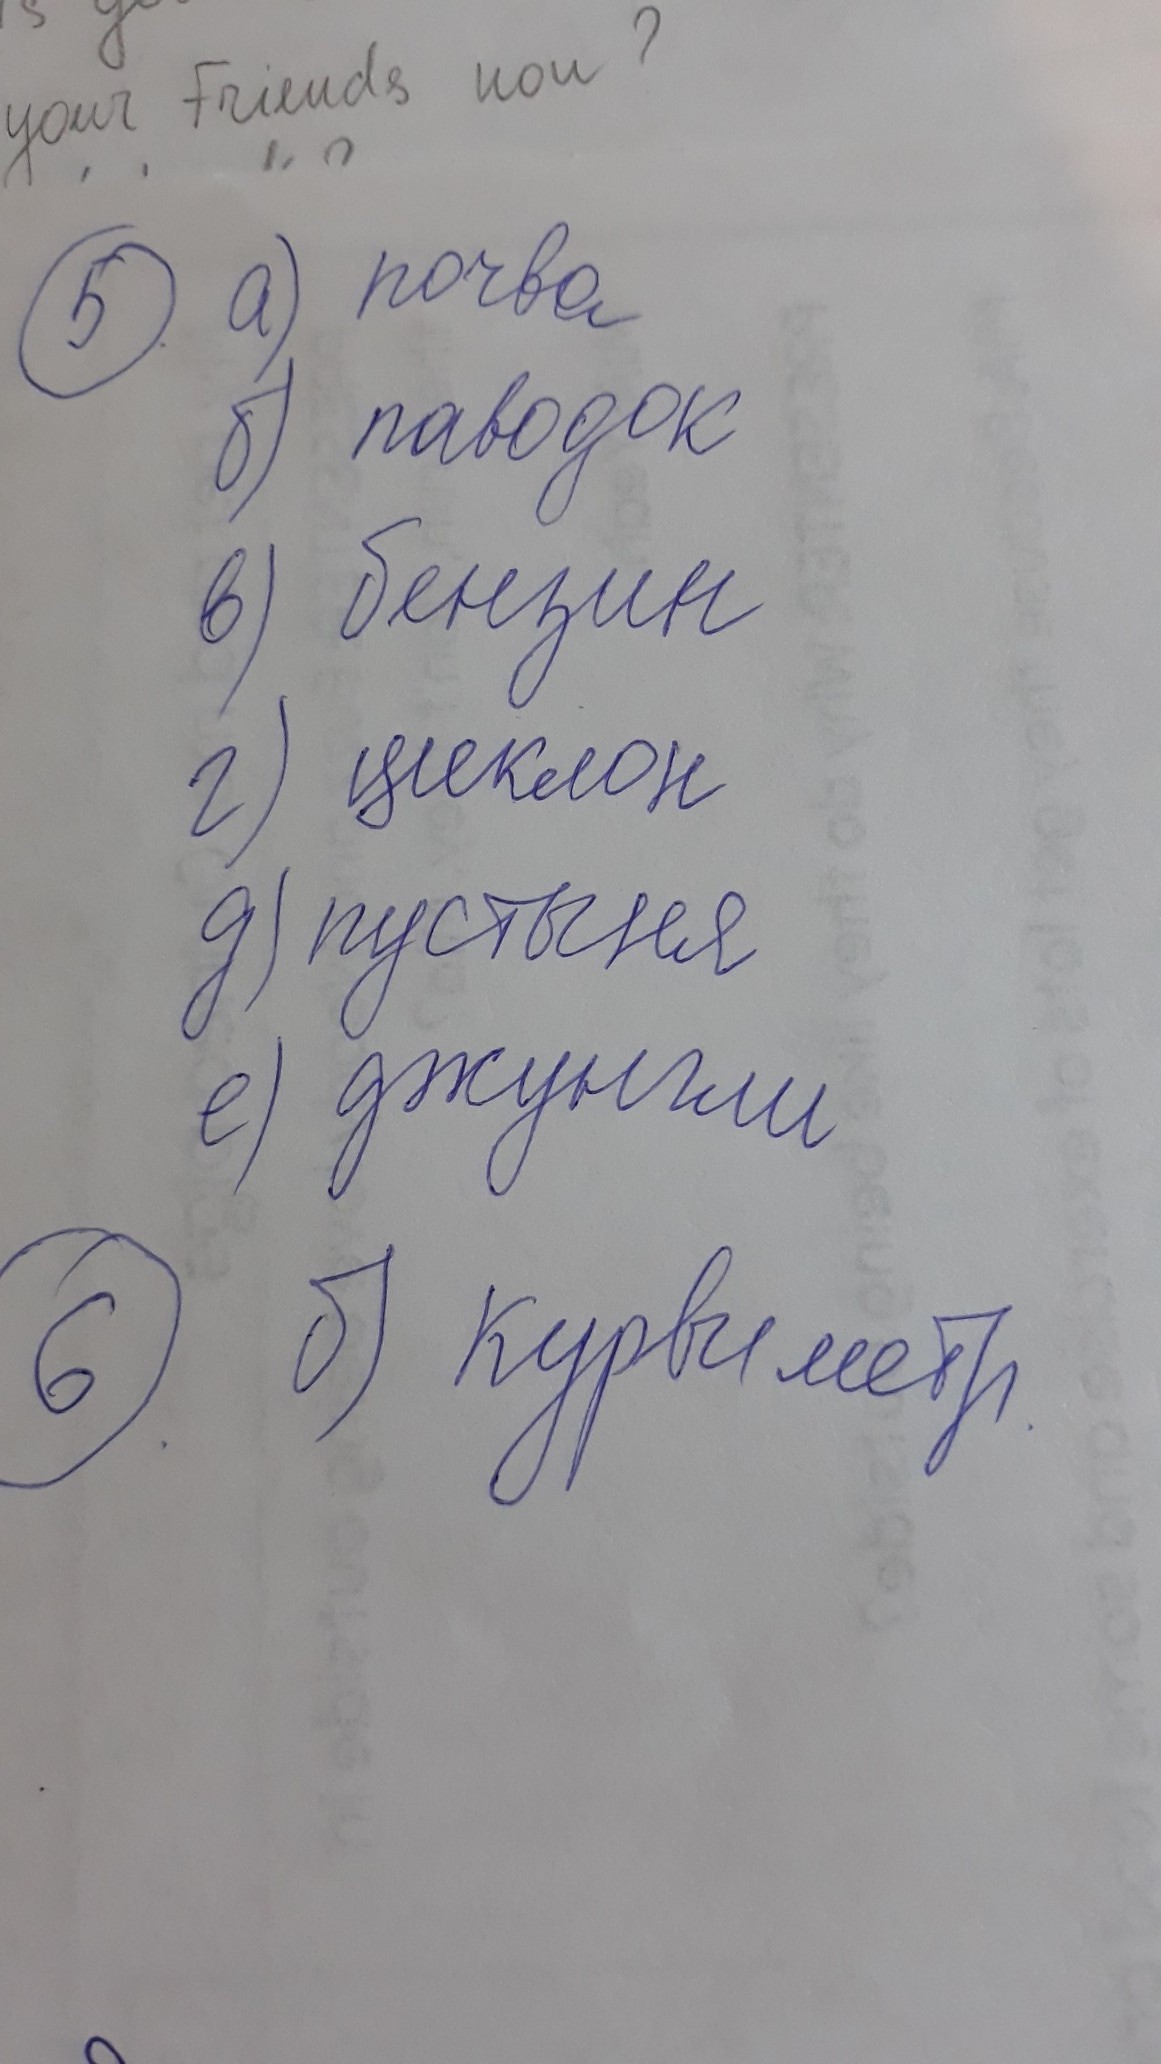 your Friends now ?
5 а) почва
б) паводок
в) бензин
г) циклон
д) пустыня
е) джунгли
6 б) Курвиметр.